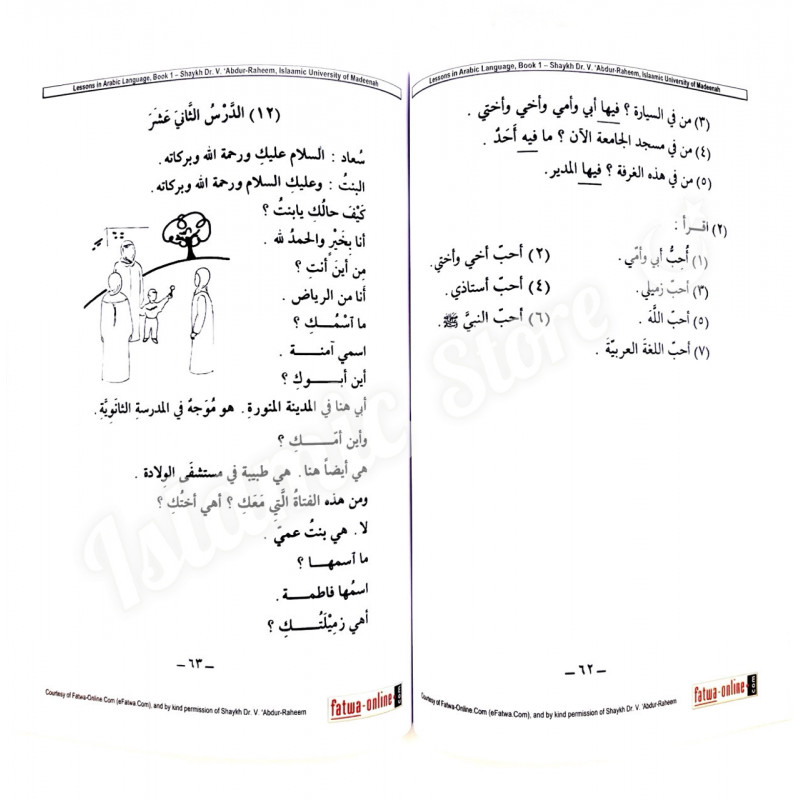 Lessons in Arabic Language, Book 1 – Shaykh Dr. V. ‘Abdur-Raheem, Islaamic University of Madeenah
(٣) من في السيارة ؟ فيها أبي وأمي وأخي وأختي .
(٤) من في مسجد الجامعة الآن ؟ ما فيه أَحَدٌ .
(٥) من في هذه الغرفة ؟ فيها المدير.
(٢) اقـرأ :
(١) أُحِبُّ أبي وأمّي . (٢) أحبّ أخي وأختي.
(٣) أحبّ زميلي . (٤) أحبّ أستاذي .
(٥) أحبّ اللَّهَ . (٦) أحبّ النبيَّ ﷺ.
(٧) أحبّ اللغةَ العربيّةَ .
– ٦٢ –
Courtesy of Fatwa-Online.Com (eFatwa.Com), and by kind permission of Shaykh Dr. V. ‘Abdur-Raheem
fatwa-online.com
Lessons in Arabic Language, Book 1 – Shaykh Dr. V. ‘Abdur-Raheem, Islaamic University of Madeenah
(١٢) الدَّرْسُ الثَّانيَ عَشَرَ
سُعاد : السلام عليكِ ورحمة الله وبركاته.
البنتُ : وعليكِ السلام ورحمة الله وبركاته.
كَيْفَ حالُكِ يابنتُ ؟
أنا بِخَيْرٍ والحمدُ لله .
مِن أينَ أنتِ ؟
أنا من الرياض .
ما آسْمُـــكِ ؟
اسمي آمنـــة .
أين أبـــوكِ ؟
أبي هنا في المدينة المنورةِ . هو مُوَجهٌ في المدرسةِ الثانَوِيَّةِ.
وأين أمّـــكِ ؟
هي أيضاً هنا . هي طبيبة في مستشفَى الوِلادة.
ومن هذه الفتاةُ الَّتي مَعَكِ ؟ أهي أختُكِ ؟
لا. هي بنتُ عميّ .
ما آسمها ؟
اسمُها فاطمـــة .
أهي زمِيْلَتُـــكِ ؟
– ٦٣ –
Courtesy of Fatwa-Online.Com (eFatwa.Com), and by kind permission of Shaykh Dr. V. ‘Abdur-Raheem
fatwa-online.com
Islamic Store